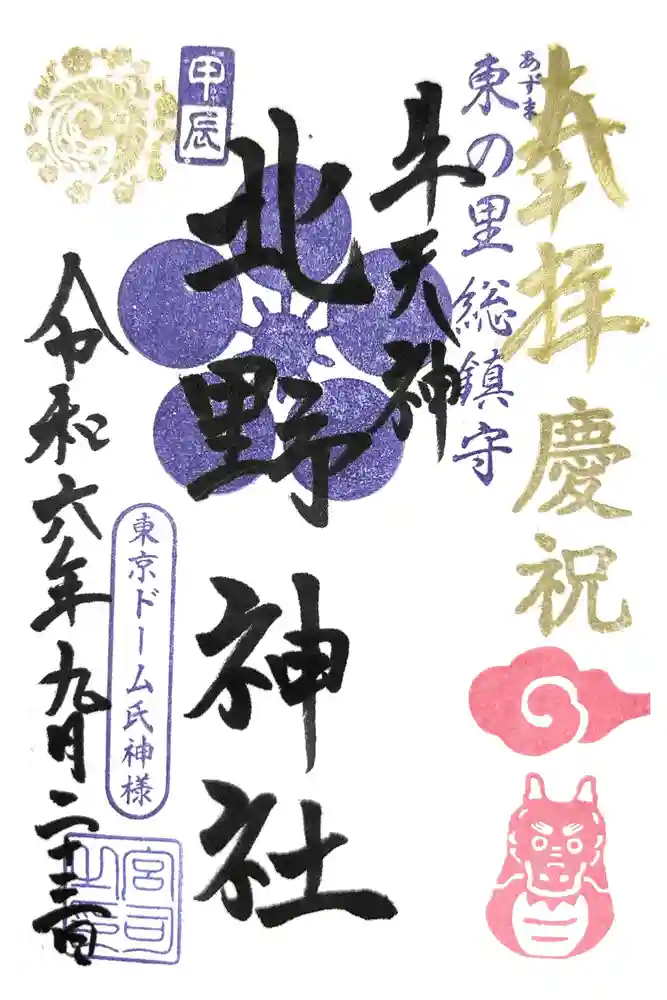 奉拝 慶祝
あずま
東の里 総鎮守
牛天神
北野神社
甲辰
東京ドーム氏神様
令和六年九月二十三日
宮司
之印